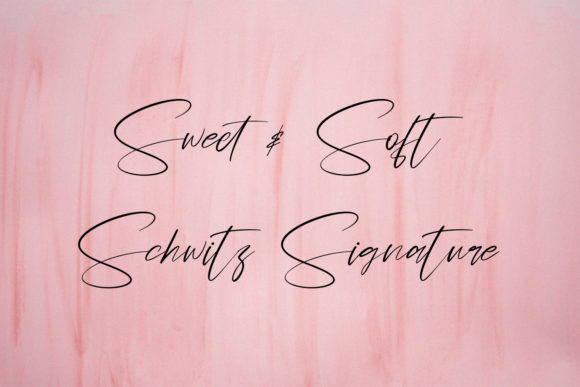 Sweet & Soft
Schwitz Signature